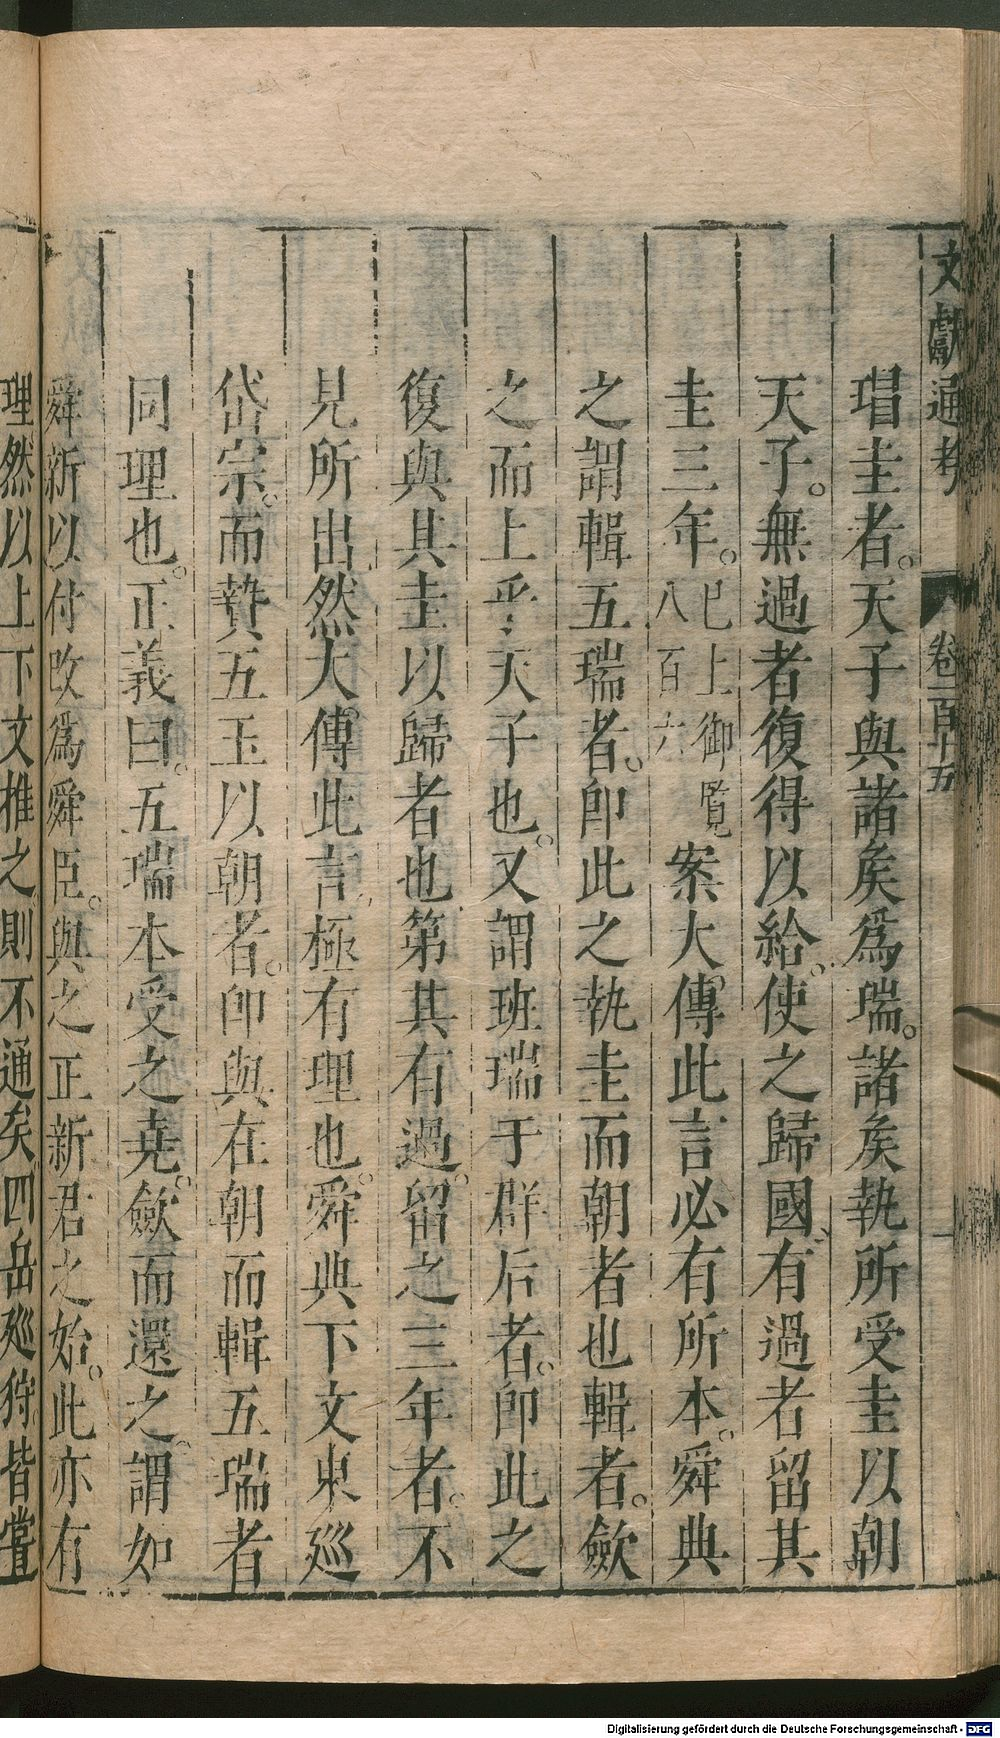 文獻通考 卷一百十五
瑁圭者。天子與諸矦爲瑞。諸矦執所受圭以朝
天子。無過者復得以給。使之歸國。有過者留其
圭三年。巳上御覧八百六案大傳此言必有所本。舜典
之謂輯五瑞者。卽此之執圭而朝者也輯者。歛
之而上乎天子也。又謂班瑞于群后者。卽此之
復與其圭以歸者也第其有過。留之三年者。不
見所出然大傳此言極有理也。舜典下文東廵
岱宗。而贄五玉以朝者。卽與在朝而輯五瑞者
同理也。正義曰。五瑞本受之堯。歛而還之。謂如
舜新以付改爲舜臣。與之正新君之始。此亦有
理然以上下文推之則不通矣四岳廵狩。皆當
Digitalisierung gefördert durch die Deutsche Forschungsgemeinschaft - DFG